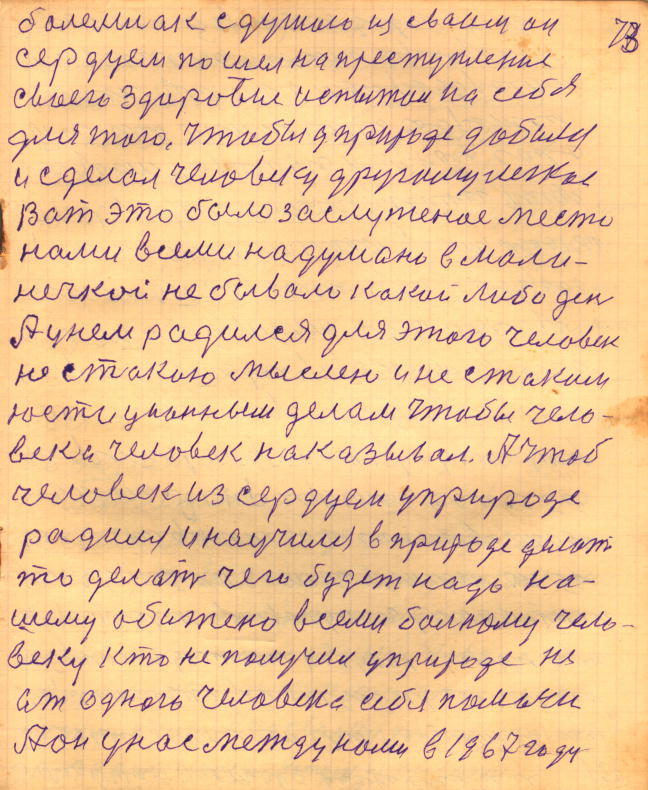 73
болеми ак сдушою из сваим он
сердцем пошел на преступление
своего здоровья испытал на себя
для того, чтобы у природе добился
и сделал человеку другому легкое
Вот это было заслуженое место
нами всеми надумано в мали-
нечкой не бывало какой либо ден
А унем радился для этого человек
не стакою мыслею и не стаким
юстиционным делам чтобы чело-
века человек наказывал. А чтоб
человек из сердцем уприроде
радился и научился в природе делат
то делат чего будет надо на-
шему обижено всеми болному чело-
веку кто не получил уприроде не
ат одного человека себя помочи
А он у нас между нами в 1967 году